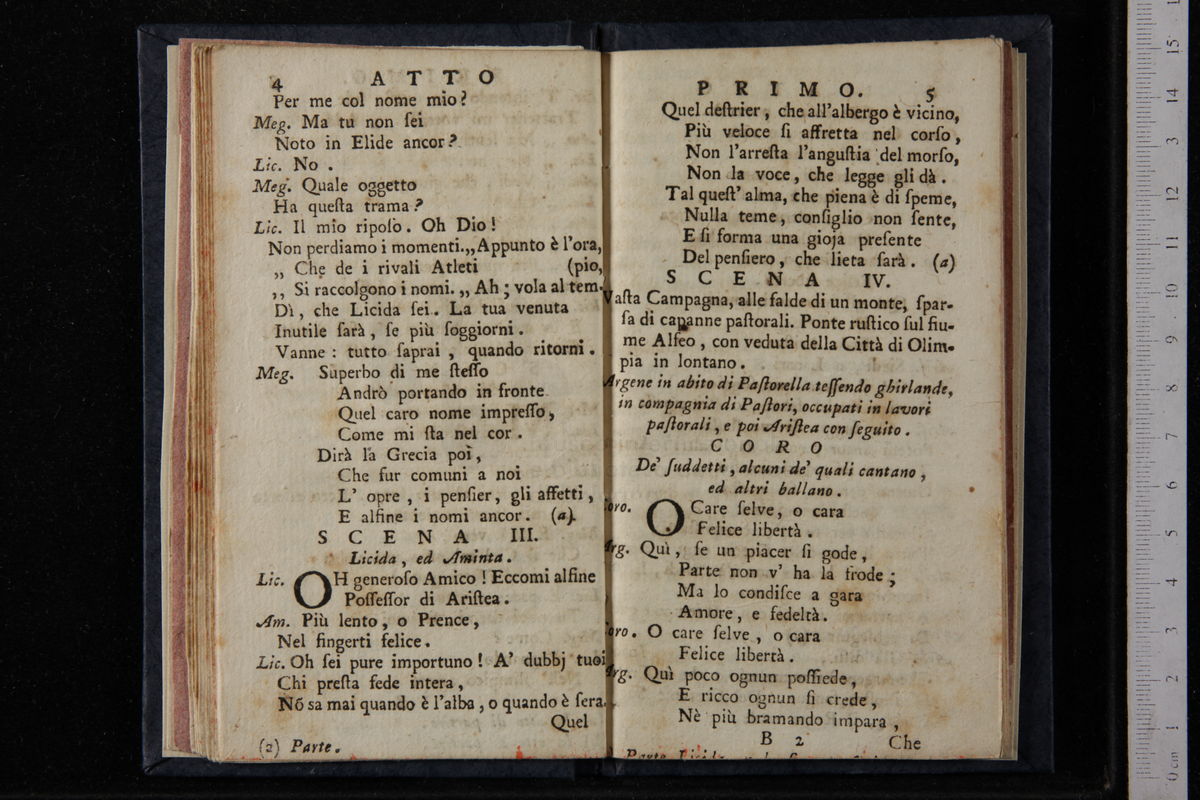 4 ATTO
Per me col nome mio?
Meg. Ma tu non ſei
Noto in Elide ancor?
Lic. No .
Meg. Quale oggetto
Ha queſta trama?
Lic. Il mio ripoſo. Oh Dio!
Non perdiamo i momenti.,, Appunto è l'ora,
,, Che de i rivali Atleti (pio,
,, Si raccolgono i nomi. ,, Ah; vola al tem-
Dì, che Licida ſei. La tua venuta
Inutile ſarà, ſe più ſoggiorni.
Vanne: tutto ſaprai, quando ritorni.
Meg. Superbo di me ſteſſo
Andrò portando in fronte
Quel caro nome impreſſo,
Come mi ſta nel cor.
Dirà la Grecia poi,
Che fur comuni a noi
L' opre, i penſier, gli affetti,
E alfine i nomi ancor. (a)
SCENA III.
Licida, ed Aminta.
Lic. OH generoſo Amico! Eccomi alfine
Poſſeſſor di Ariſtea.
Am. Più lento, o Prence,
Nel fingerti felice.
Lic. Oh ſei pure importuno! A' dubbj tuoi
Chi preſta fede intera,
Nõ sa mai quando è l'alba, o quando è ſera.
Quel
(2) Parte.
PRIMO. 5
Quel deſtrier, che all'albergo è vicino,
Più veloce ſi affretta nel corſo,
Non l'arreſta l'anguſtia del morſo,
Non la voce, che legge gli dà.
Tal queſt' alma, che piena è di ſpeme,
Nulla teme, conſiglio non ſente,
E ſi forma una gioja preſente
Del penſiero, che lieta ſarà. (a)
SCENA IV.
Vaſta Campagna, alle falde di un monte, ſpar-
ſa di capanne paſtorali. Ponte ruſtico ſul fiu-
me Alfeo, con veduta della Città di Olim-
pia in lontano.
Argene in abito di Paſtorella teſſendo ghirlande,
in compagnia di Paſtori, occupati in lavori
paſtorali, e poi Ariſtea con ſeguito.
CORO
De' ſuddetti, alcuni de' quali cantano,
ed altri ballano.
Coro. O Care ſelve, o cara
Felice libertà.
Arg. Quì, ſe un piacer ſi gode,
Parte non v' ha la frode;
Ma lo condiſce a gara
Amore, e fedeltà.
Coro. O care ſelve, o cara
Felice libertà.
Arg. Quì poco ognun poſſiede,
E ricco ognun ſi crede,
Nè più bramando impara,
B 2 Che
0 cm 1 2 3 4 5 6 7 8 9 10 11 12 13 14 15